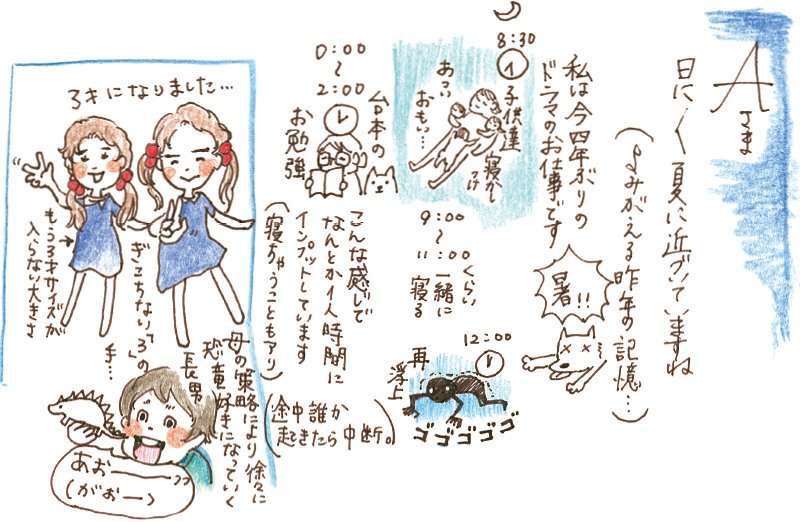 Aさま
日に〱夏に近づいていますね
(よみがえる昨年の記憶…)
暑!!
私は今四年ぶりの
ドラマのお仕事です
8:30
子供達
寝かしつけ
あつい
おもい…
9:00
〜
11:00くらい
一緒に
寝る
12:00
再
浮上
ゴゴゴゴゴ
0:00
〜
2:00
台本の
お勉強
こんな感じで
なんとか1人時間に
インプットしています
(寝ちゃうこともアリ)
(途中誰か
起きたら中断。)
3才になりました…
もう3才サイズが
入らない大きさ
ぎこちない「3」の
手…
母の策略により徐々に
恐竜好きになっていく
長男
あおーーー
(がおー)